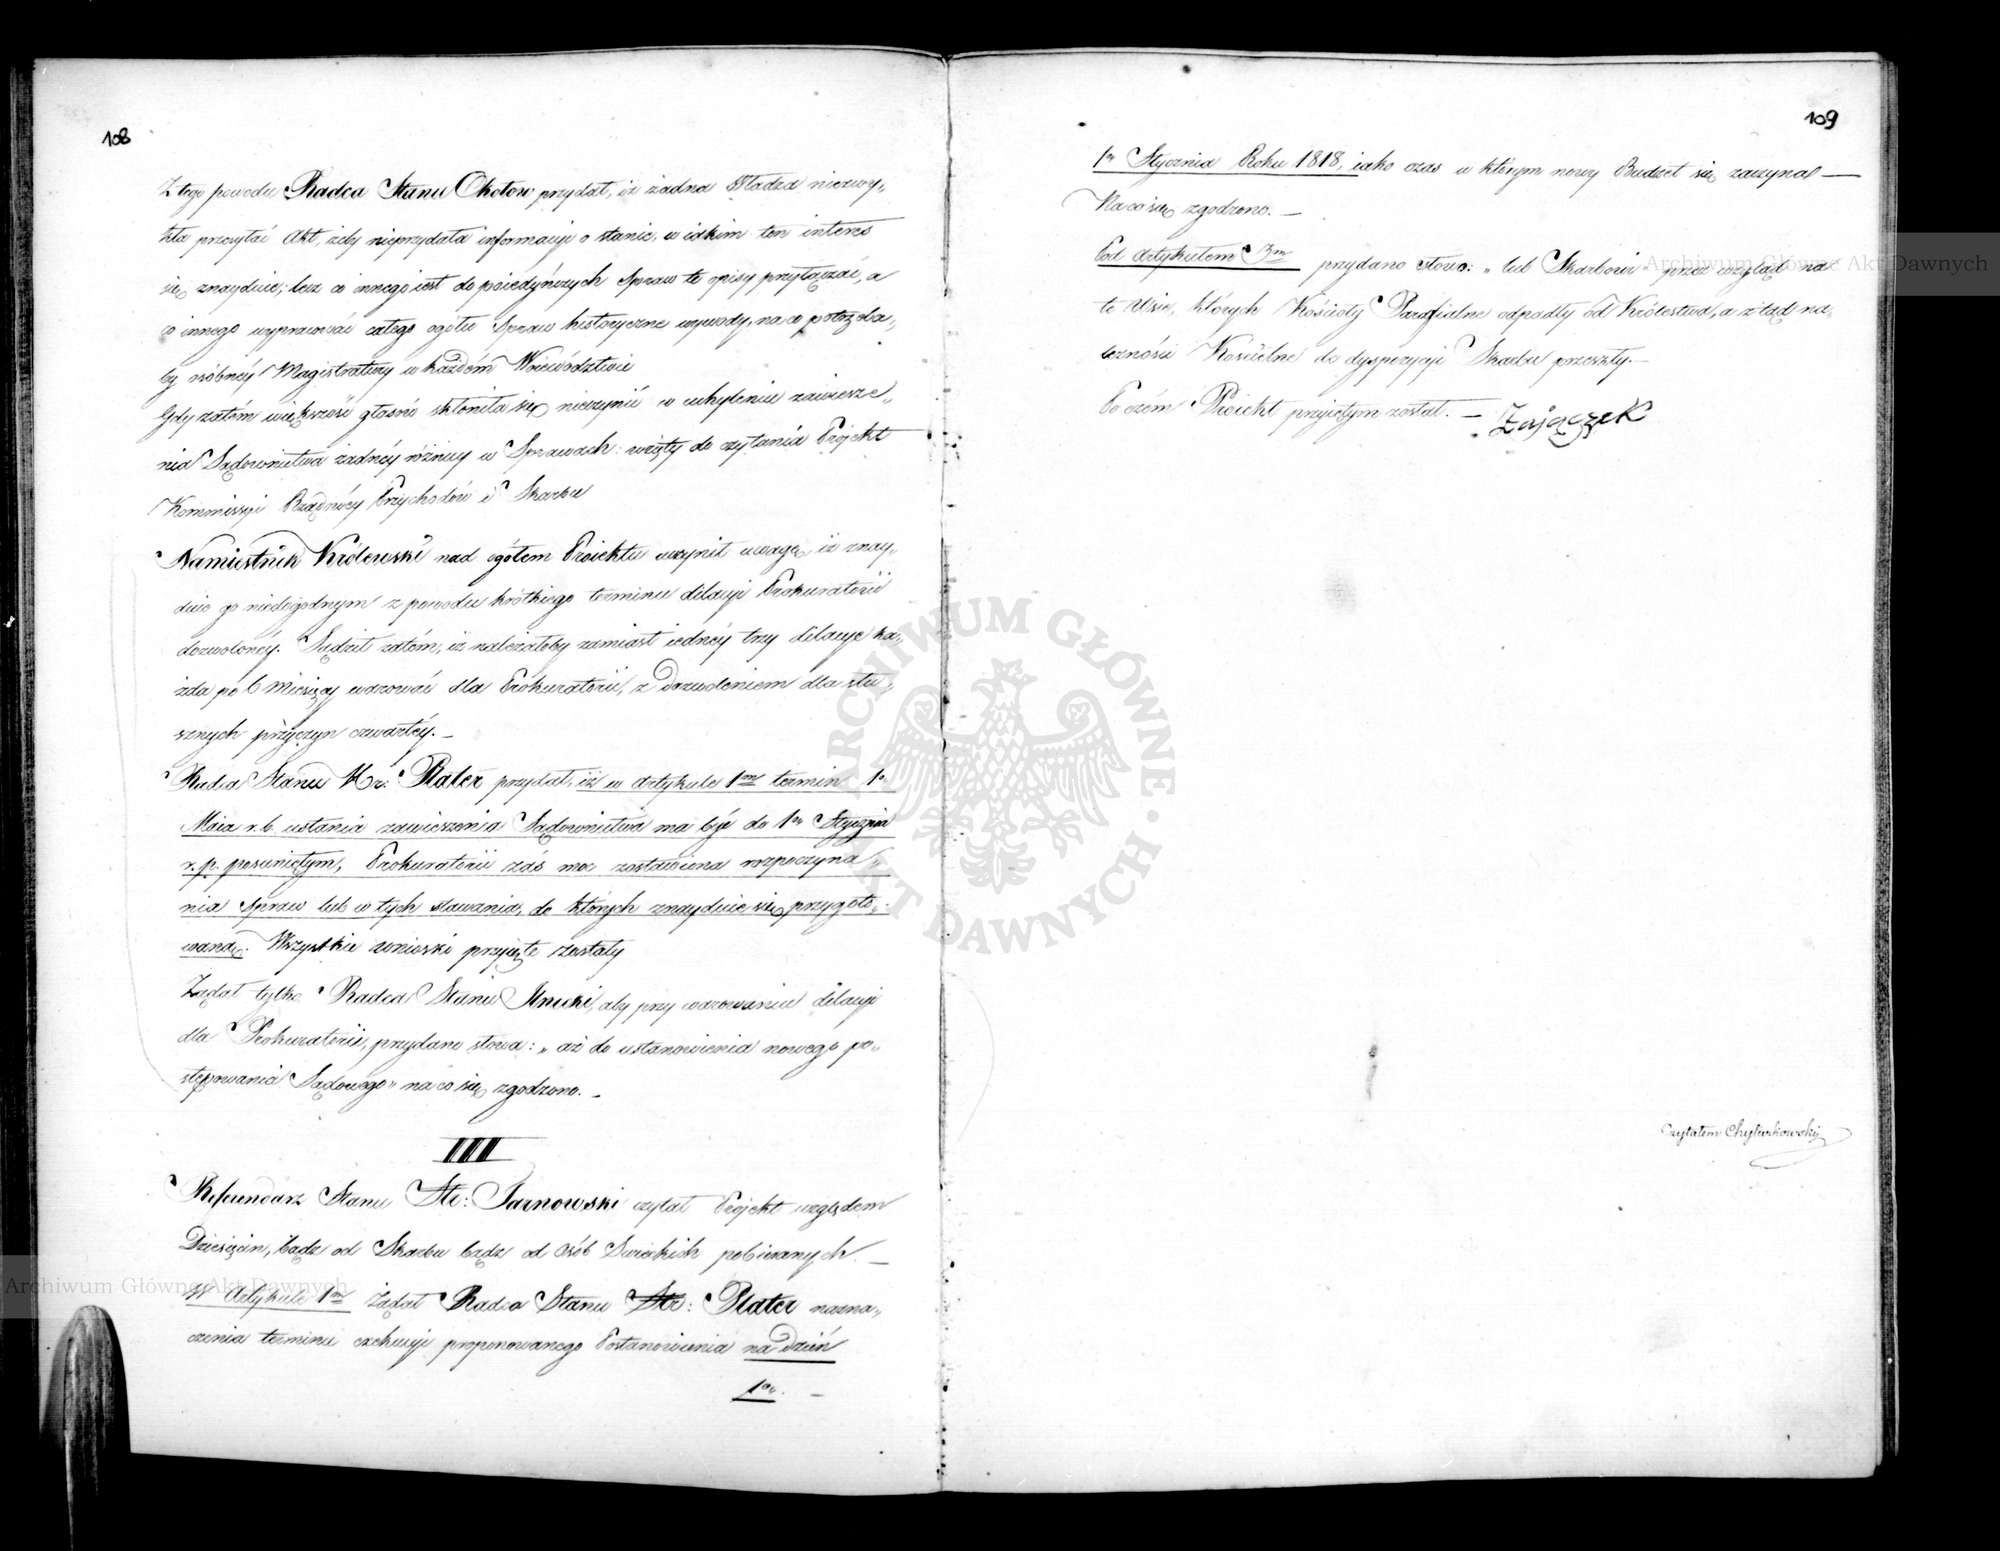 108
Z tego powodu Radca Stanu Okołow przydał, iż żadna Władza niezwy„
kła przesyłać Akt, żeby nieprzydała informacyi o stanie, w iakim ten interes
się znayduie; lecz co innego iest do poiedyńczych Spraw te opisy przyłączać, a
co innego wypracować całego ogółu Spraw historyczne wywody, na co potrzeba„
by osóbnéy Magistratury w każdém Woiewództwie
Gdy zatém większość głosów skłoniła się nieczynić w uchyleniu zawiesze„
nia Sądownictwa żadnéy różnicy w Sprawach: wzięty do czytania Projekt
Kommissyi Rządowéy Przychodów i Skarbu
Namiestnik Królewski nad ogółem Proiektu uczynił uwagę, iż znay„
duie go niedogodnym z powodu krótkiego terminu dilacyi Prokuratorii
dozwolonéy. Sądził zatém, iż należałoby zamiast iednéy trzy dilacye ka„
żda po 6 Miesięcy warować dla Prokuratorii, z dozwoleniem dla słu„
sznych przyczyn czwartéy. –
Radca Stanu Hr: Plater przydał, iż w Artykule 1m termin 1o
Maia r. b. ustania zawieszenia Sądownictwa ma być do 1o Stycznia
r. p. posuniętym, Prokuratorii zaś moc zostawiona rozpoczyna„
nia Spraw lub w tych stawania, do których znayduie się przygoto„
waną. Wszystkie wnioski przyięte zostały
Żądał tylko Radca Stanu Ilnicki, aby przy warowaniu dilacyi
dla Prokuratorii, przydano słowa: „ aż do ustanowienia nowego po„
stępowania Sądowego" na co się zgodzono. –
III
Referendarz Stanu Hr: Tarnowski czytał Projekt względem
Dziesięcin, bądź od Skarbu bądź od Osób Swieckich pobieranych. –
W Artykule 1m Żądał Radca Stanu Hr: Plater nazna„
czenia terminu exekucyi proponowanego Postanowienia na dzień
1o. –
109
1o Stycznia Roku 1818, iako czas w którym nowy Budżet się zaczynał –
Na co się zgodzono. –
Pod Artykułem 3m przydano słowo: „ lub Skarbowi" przez wzgląd na
te Wsie, których Kościoły Parafialne odpadły od Królestwa, a ztąd na„
leżności Kościelne do dyspozycyi Skarbu przeszły. –
Po czém Proiekt przyiętym został. – Zaiączek
Czytałem Chyliczkowski
Archiwum Główne Akt Dawnych
Archiwum Główne Akt Dawnych
ARCHIWUM GŁÓWNE AKT DAWNYCH